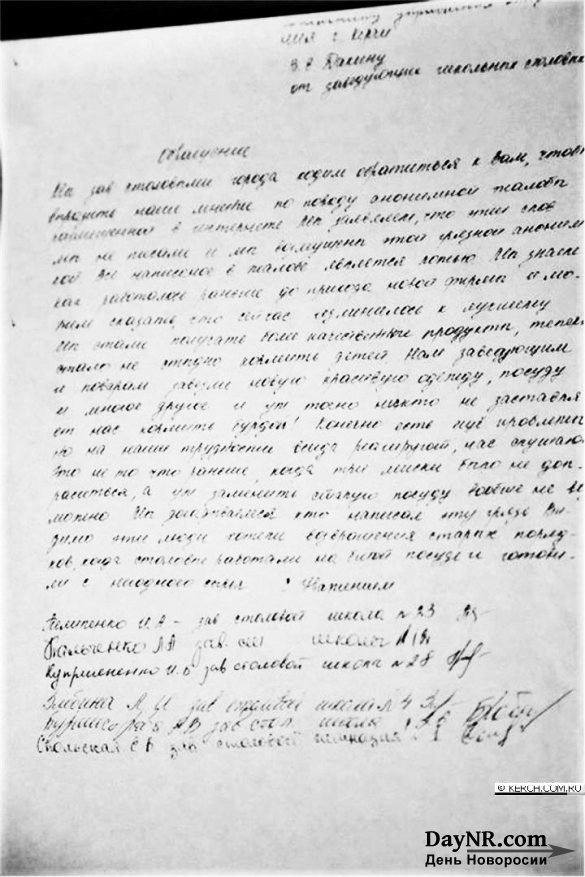 ция г. Керчи
от заведующих школьных столовых
Обращение
Мы зав столовыми города хотим обратиться к Вам, чтобы
выразить наше мнение по поводу анонимной жалобы
размещенной в интернете Мы заявляем, что этих слов
мы не писали и мы возмущены этой грязной аноним
кой Все написаное в жалобе является ложью Мы знаем
как работалось раньше до прихода новой фирмы и мо-
жем сказать, что сейчас изминилось к лучшему
Мы стали получать более качественные продукты, теперь
стало не стыдно кормить детей Нам заведующим
и поварам новую красивую одежду, посуду
и многое другое и уж точно никто не заставля
ет нас кормить бурдой! Конечно есть ещё проблемы
но на наши трудности всегда реагируют, нас слушают
Это не то что раньше, когда три миски было не доп-
роситься, а уж заменить старую посуду вообще не во
можно Мы догадываемся кто написал эту грязь Ви-
димо эти люди хотели возвращения старых поряд-
ков, когда столовые работали на битой посуде и готови-
ли с
зав столовой школа №23
Пальченко Л А зав. школы
И.В зав столовой школа №28
А И зав столовой школа
А В зав стол школа
Стольская Е В зав столовой гимназия
© KERCH.COM.RU
DayNR.com
День Новоросии